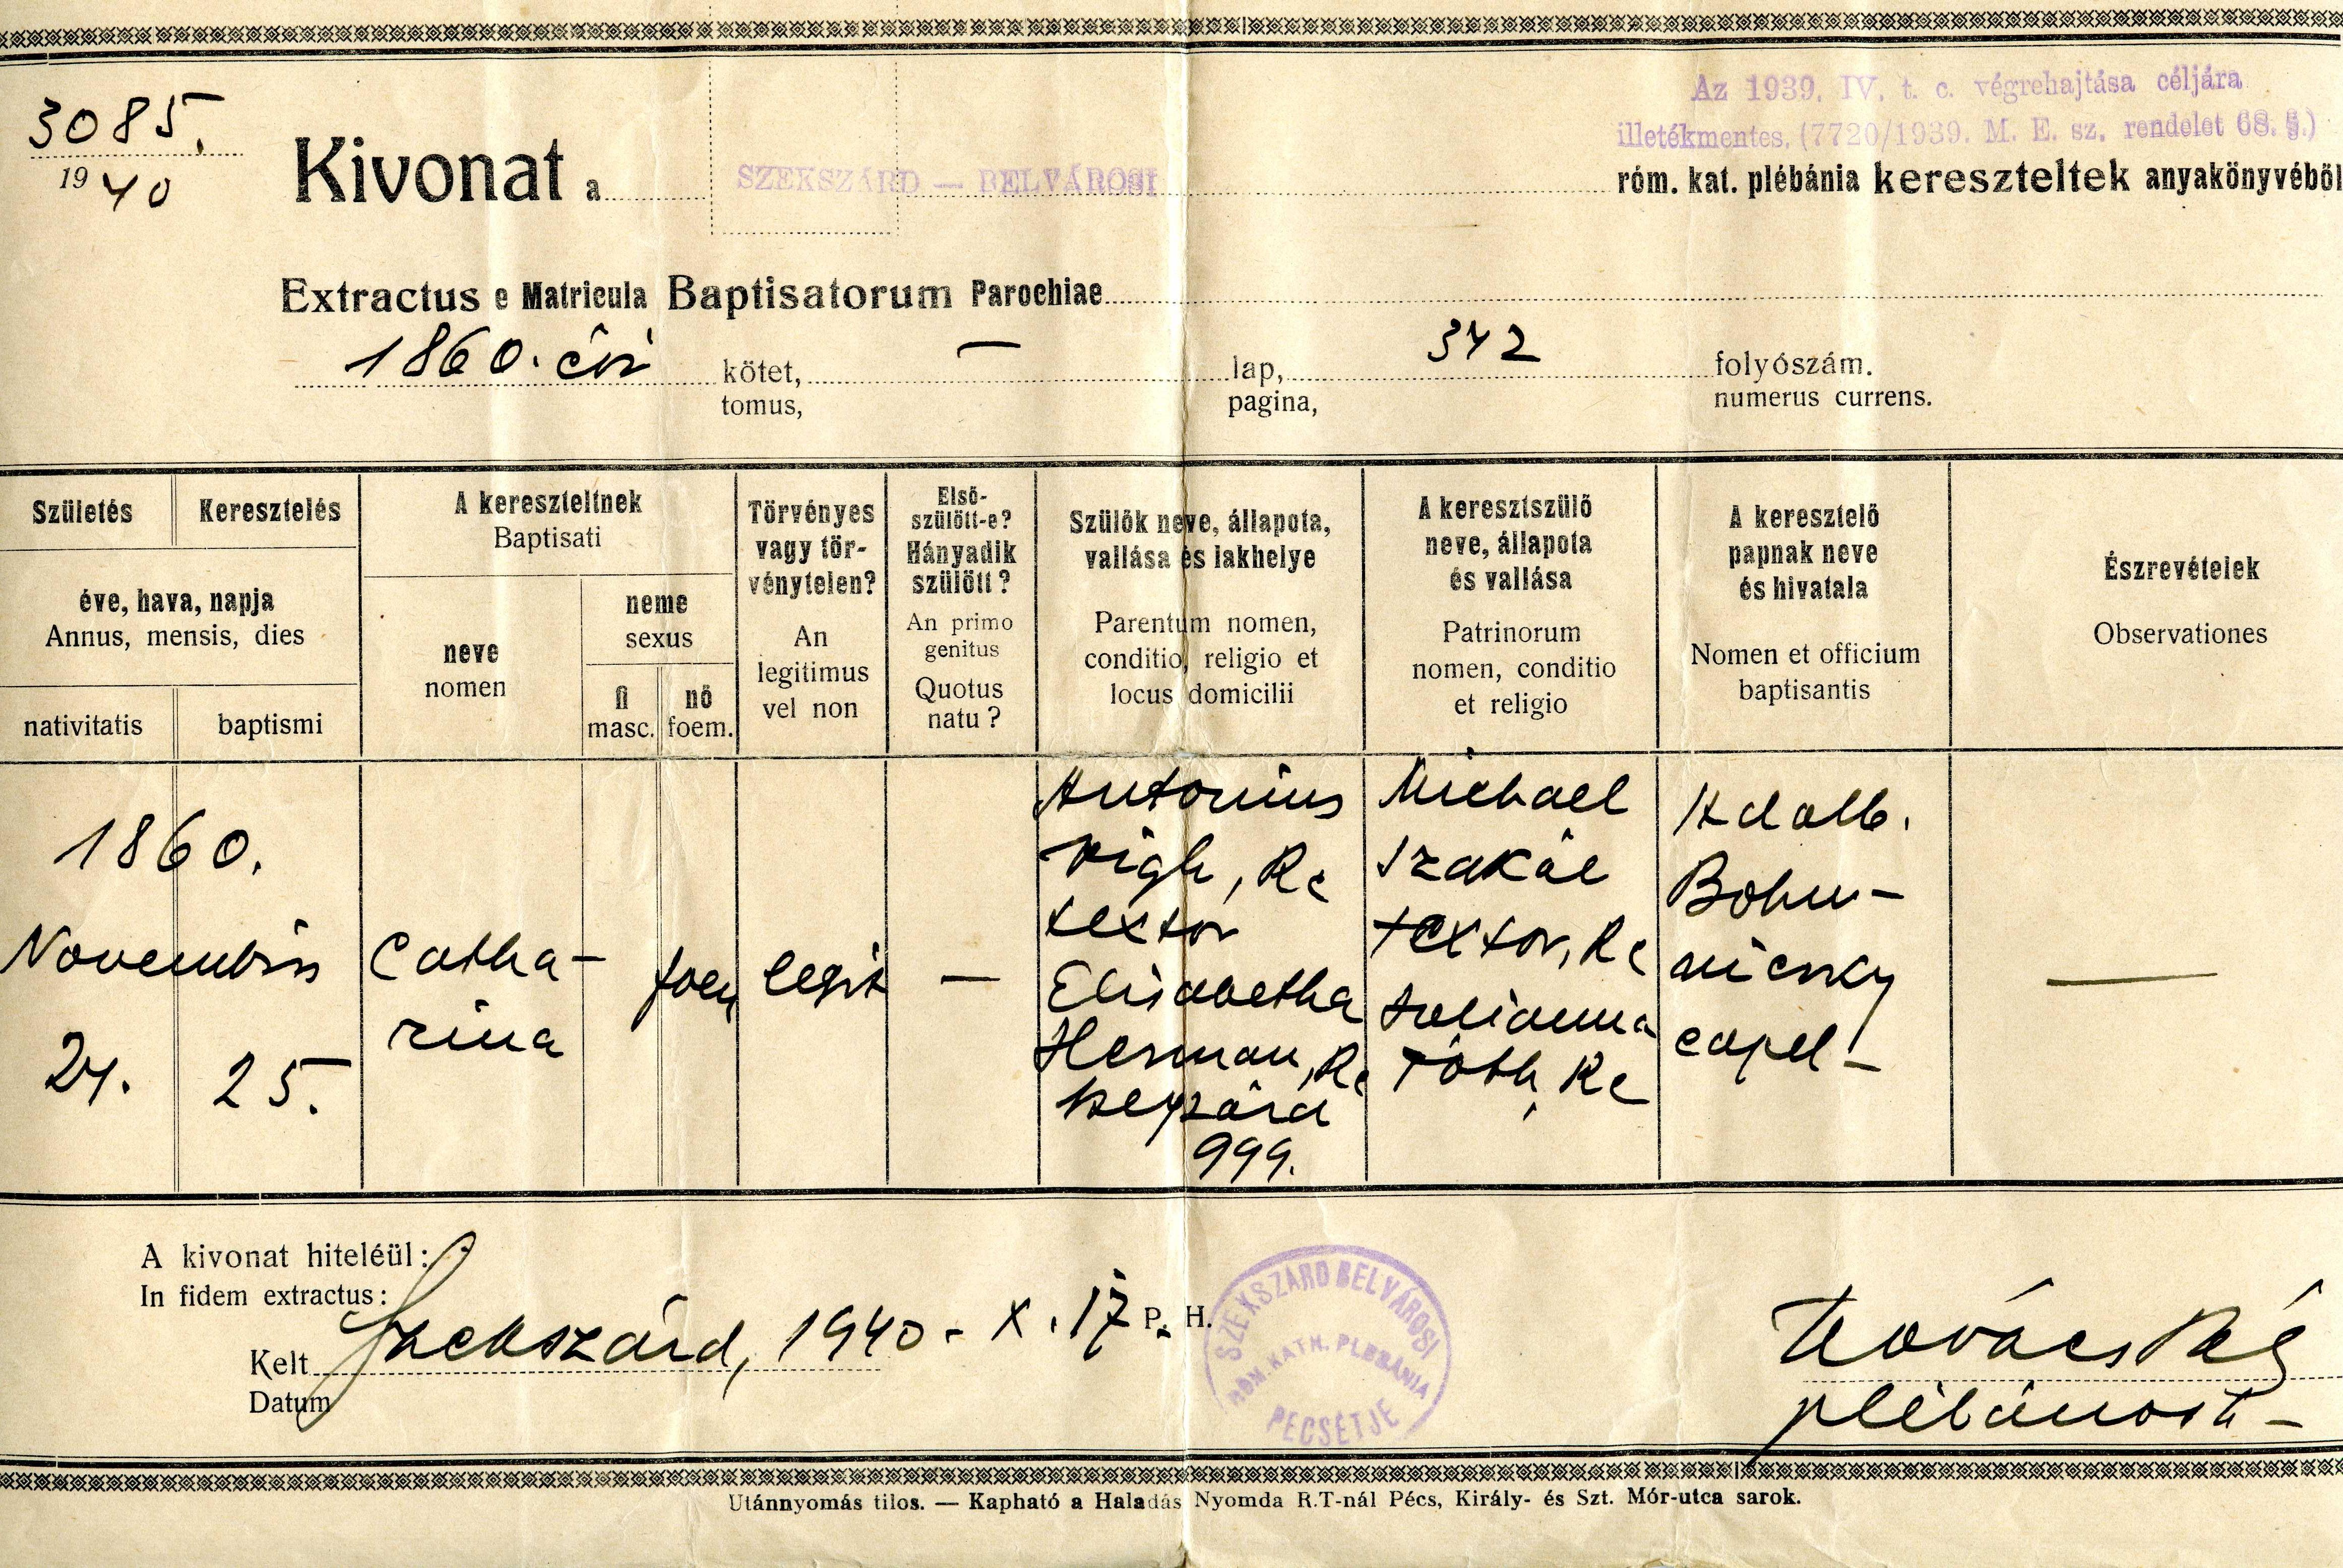 3085.
1940
Az 1939. IV. t. c. végrehajtása céljára
illetékmentes. (7720/1939. M. E. sz. rendelet 68. §.)
Kivonat a SZEKSZÁRD — BELVÁROSI róm. kat. plébánia kereszteltek anyakönyvéből
Extractus e Matricula Baptisatorum Parochiae
1860. évi kötet, — lap, 342 folyószám.
tomus, pagina, numerus currens.
Születés
Keresztelés
éve, hava, napja
Annus, mensis, dies
nativitatis
baptismi
A kereszteltnek
Baptisati
neve
nomen
neme
sexus
fi
masc.
nő
foem.
Törvényes
vagy tör-
vénytelen?
An
legitimus
vel non
Első-
szülött-e?
Hányadik
szülött?
An primo
genitus
Quotus
natu?
Szülők neve, állapota,
vallása és lakhelye
Parentum nomen,
conditio, religio et
locus domicilii
A keresztszülő
neve, állapota
és vallása
Patrinorum
nomen, conditio
et religio
A keresztelő
papnak neve
és hivatala
Nomen et officium
baptisantis
Észrevételek
Observationes
1860.
Novembris
24.
25.
Catha-
rina
foem
legit
—
Antonius
Vigh, Rc
textor
Elisabetha
Herman, Rc
Szegzárd
999.
Michael
Szakál
textor, Rc
Julianna
Tóth, Rc
Adalb.
Bohu-
niczky
capel-
—
A kivonat hiteléül:
In fidem extractus:
Kelt Szekszárd, 1940 - X. 17 P. H.
Datum
SZEKSZÁRD BELVÁROSI
RÓM. KATH. PLÉBÁNIA
PECSÉTJE
Kovács
Utánnyomás tilos. — Kapható a Haladás Nyomda R.T-nál Pécs, Király- és Szt. Mór-utca sarok.